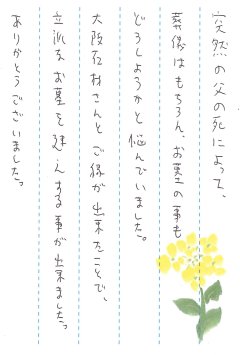 突然の父の死によって、
葬儀はもちろん、お墓の事も
どうしようかと悩んでいました。
大阪石材さんとご縁が出来たことで、
立派なお墓を建立する事が出来ました。
ありがとうございました。